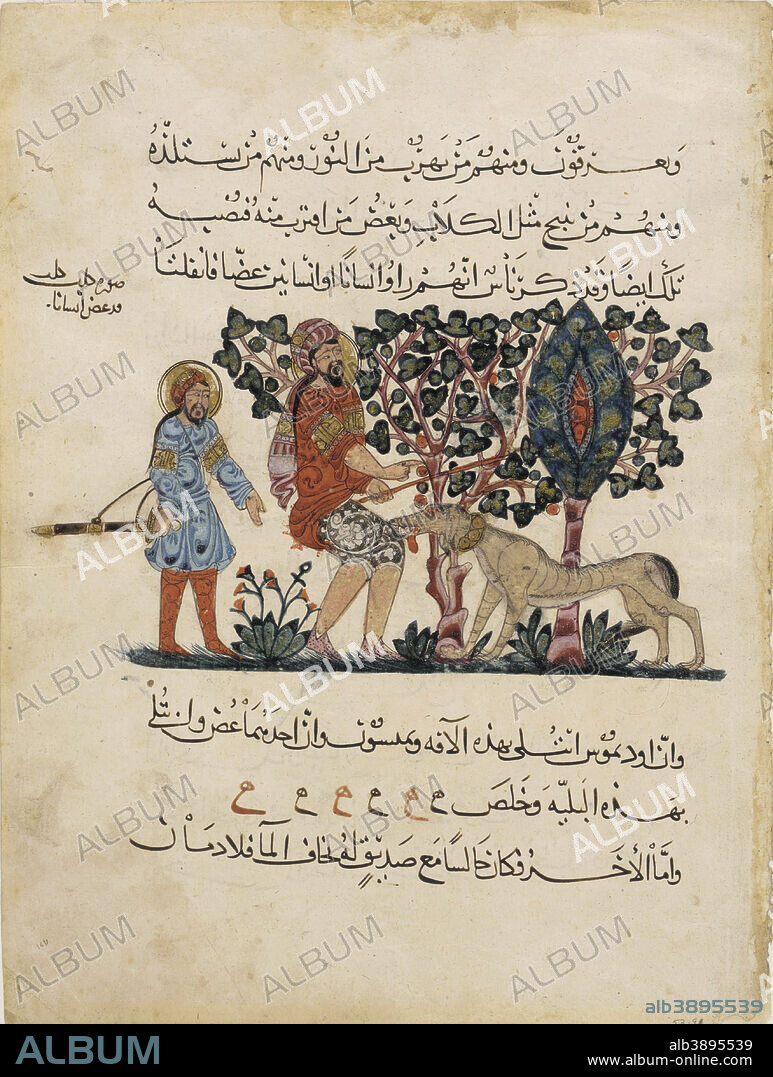 ويعرقون ومنهم من يهرب من النور ومنهم من يستلذه
ومنهم من ينبح مثل الكلاب وبعض من اقترب منه فتصيبه
تلك ايضا وقد ذكر ناس انهم راوا انسانا او انسانين عضا فانفلتا
صورة كلب كلب
قد عض انسانا
وان اوديموس ابتلى بهذه الآفة وان احدهما عض وابتلى
بهذه البلية وخلص
واما الأخر فكان جالسا مع صديق له يخاف المآ فلا دمان
ALBUM
alb3895539
ALBUM
alb3895539
www.album-online.com